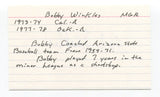 Bobby Winkles MGR
1973-74 Cal.-A
1977-78 Oak.-A
Bobby Coached Arizona State
Baseball team From 1959-71.
Bobby played 7 years in the
minor league as a shortstop.